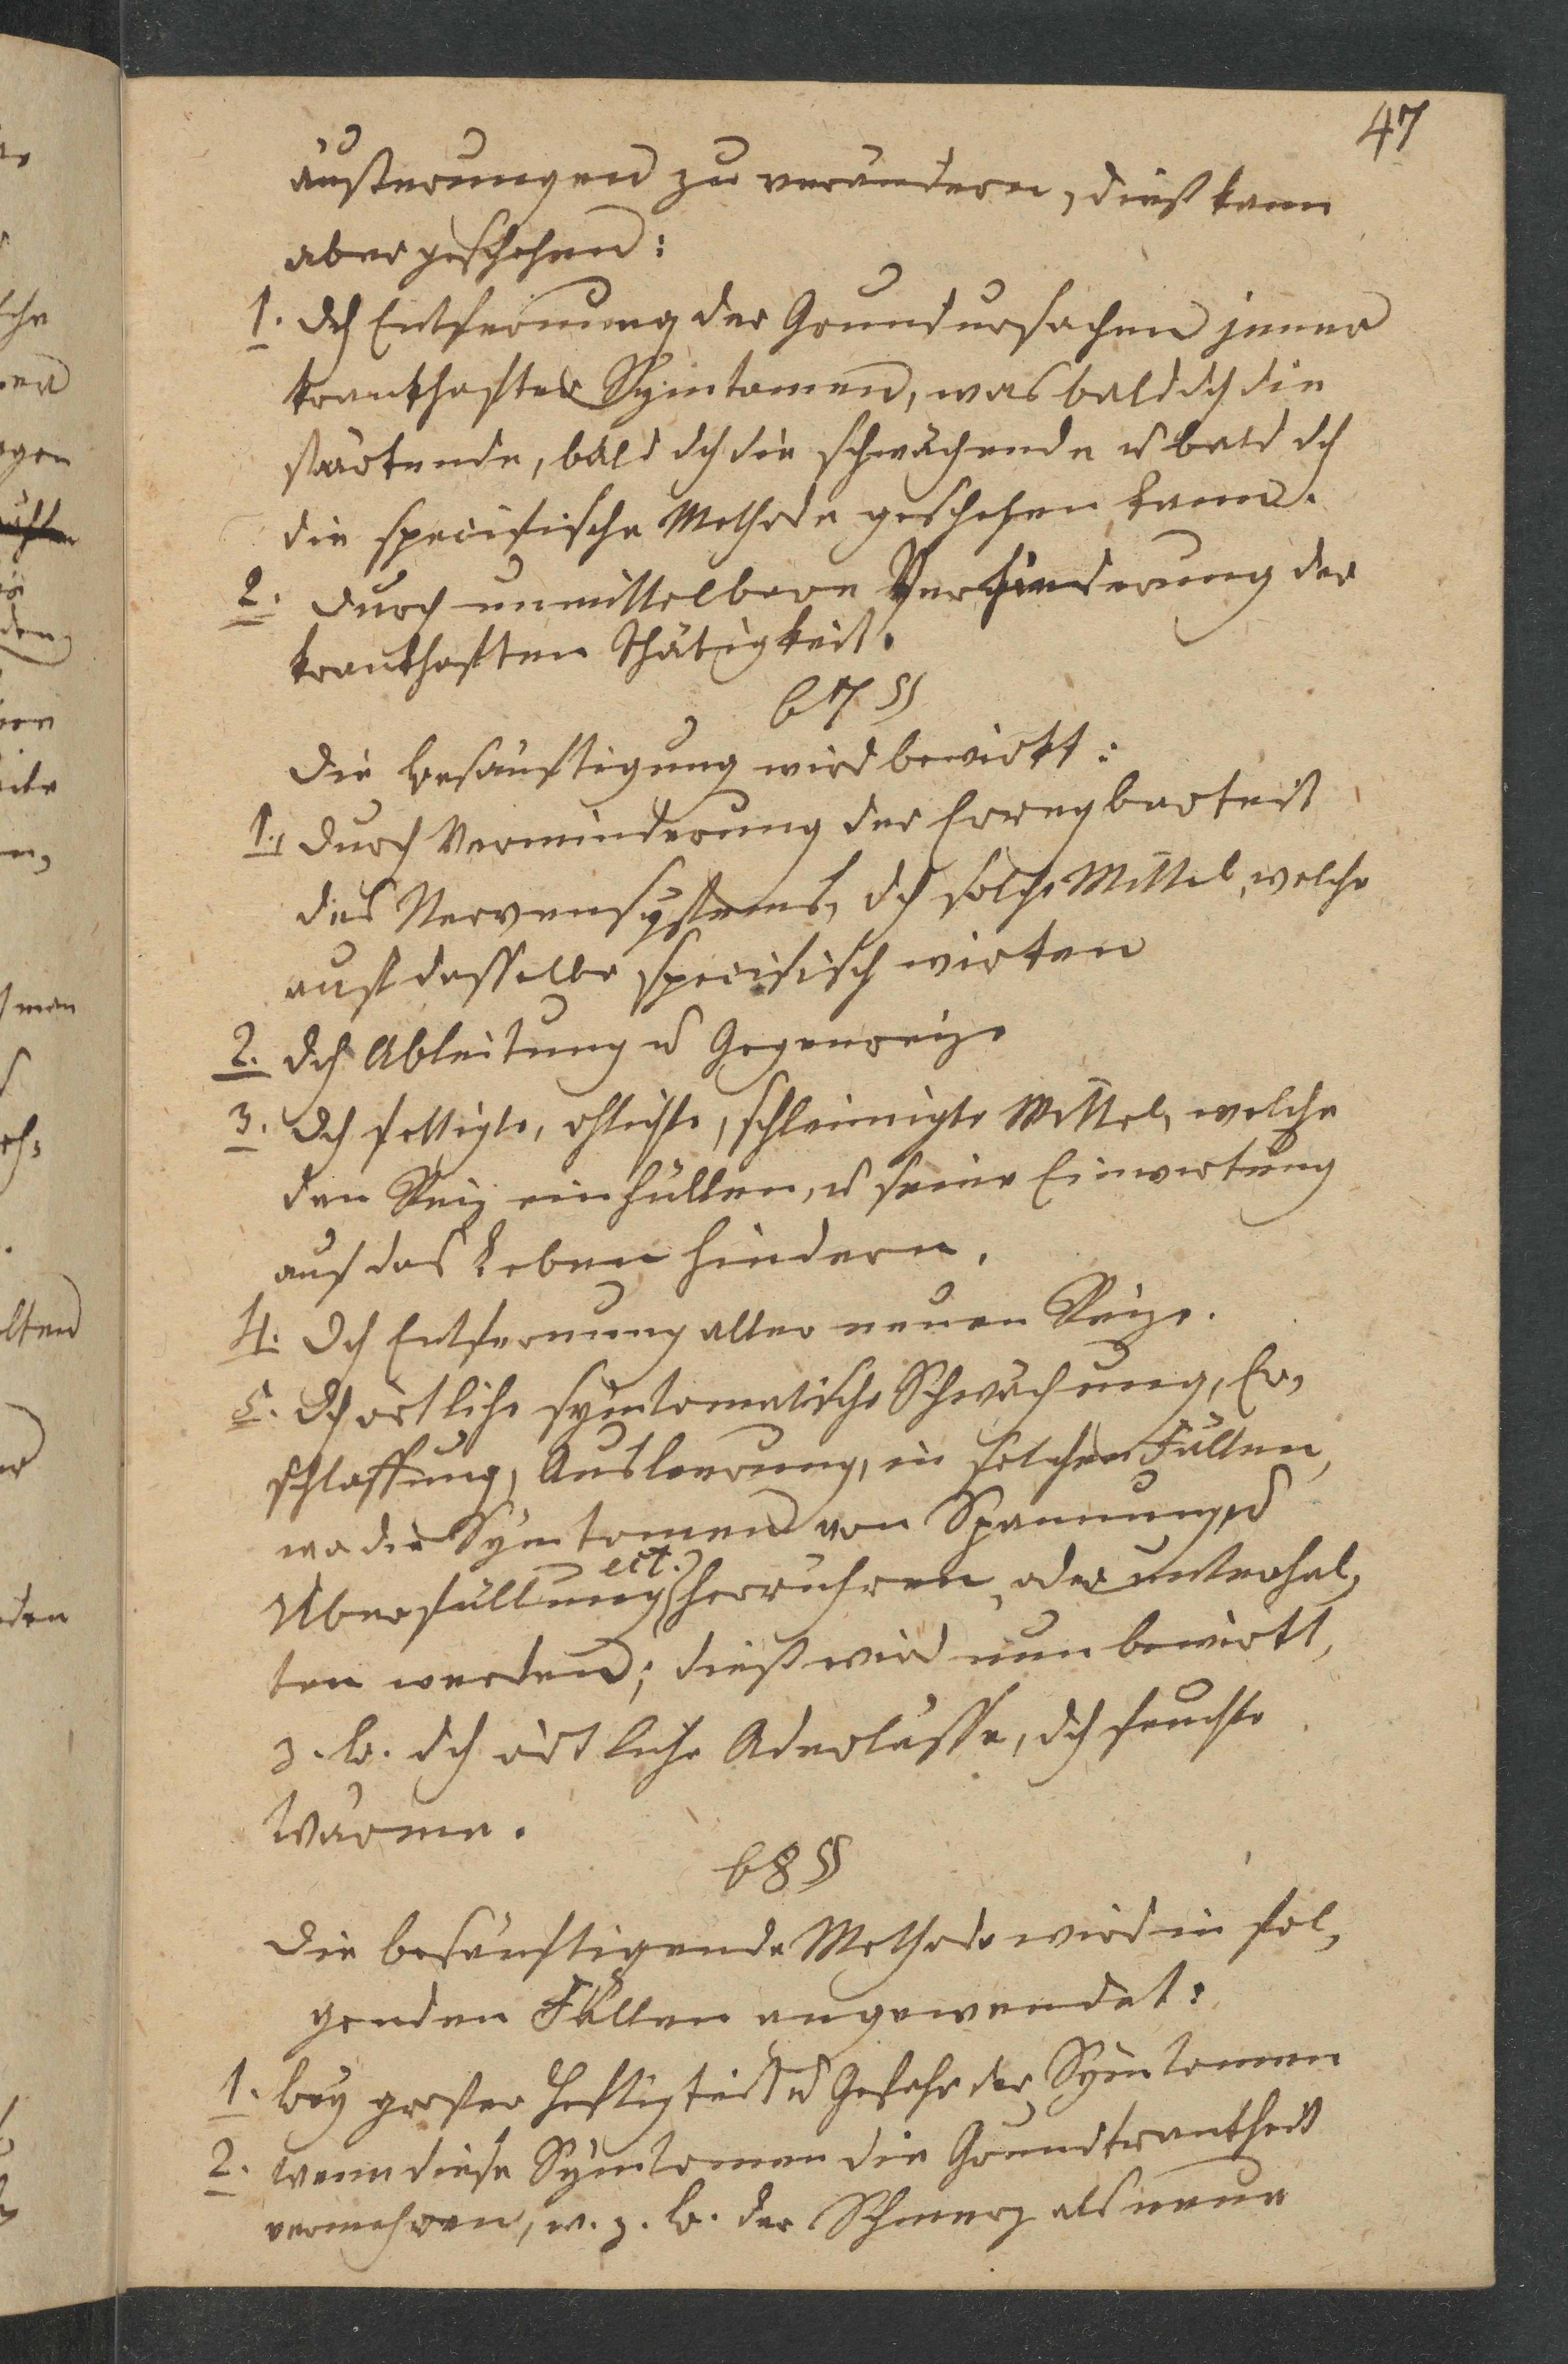 47
äußerungen zu verändern, dieß kann
aber geschehen:
1. dch Entfernung der Grundursachen jener
krankhafter Symtomen, was bald dch die
stärkende, bald dch die schwächende u bald dch
die specifische Methode geschehen kann.
2. durch unmittelbare Verhinderung der
krankhaften Thätigkeit.
67 §
Die Besänftigung wird bewirkt:
1. durch Verminderung der Erregbarkeit
des Nervensystems, dch solche Mittel, welche
auf dasselbe specifisch wirken
2. dch Ableitung u Gegenreize
3. dch fettigte, ohlichte, schleimigte Mittel, welche
den Reiz einhüllen, u seine Einwirkung
auf das Leben hindern.
4. Dch Entfernung aller neuen Reize.
5. Dch örtliche symtomatische Schwächung, Er,
schlaffung, Ausleerung, in solchen Fällen,
wo die Symtomen von Spannung u
Uberfüllung ect. herrühren, oder unterhal,
ten werden; dieß wird nun bewirkt,
z. B. dch örtliche Aderlässe, dch feuchte
Wärme.
68 §
Die besänftigende Methode wird in fol,
genden Fällen angewendet:
1. Bey großer Heftigkeit u Gefahr der Symtomen
2. wenn diese Symtomen die Grundkrankheit
vermehren, w. z. B. der Schmerz als neue